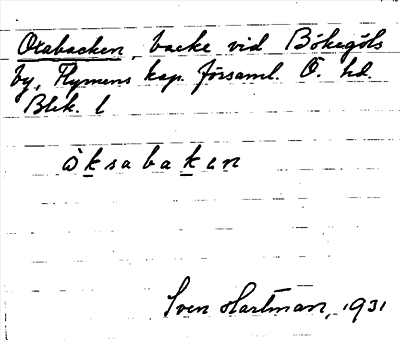 Oxabacken, backe vid Bökegöls
by, Flymens kap. församl. Ö. hd.
Blek. l
òksabakən
Sven Hartman, 1931